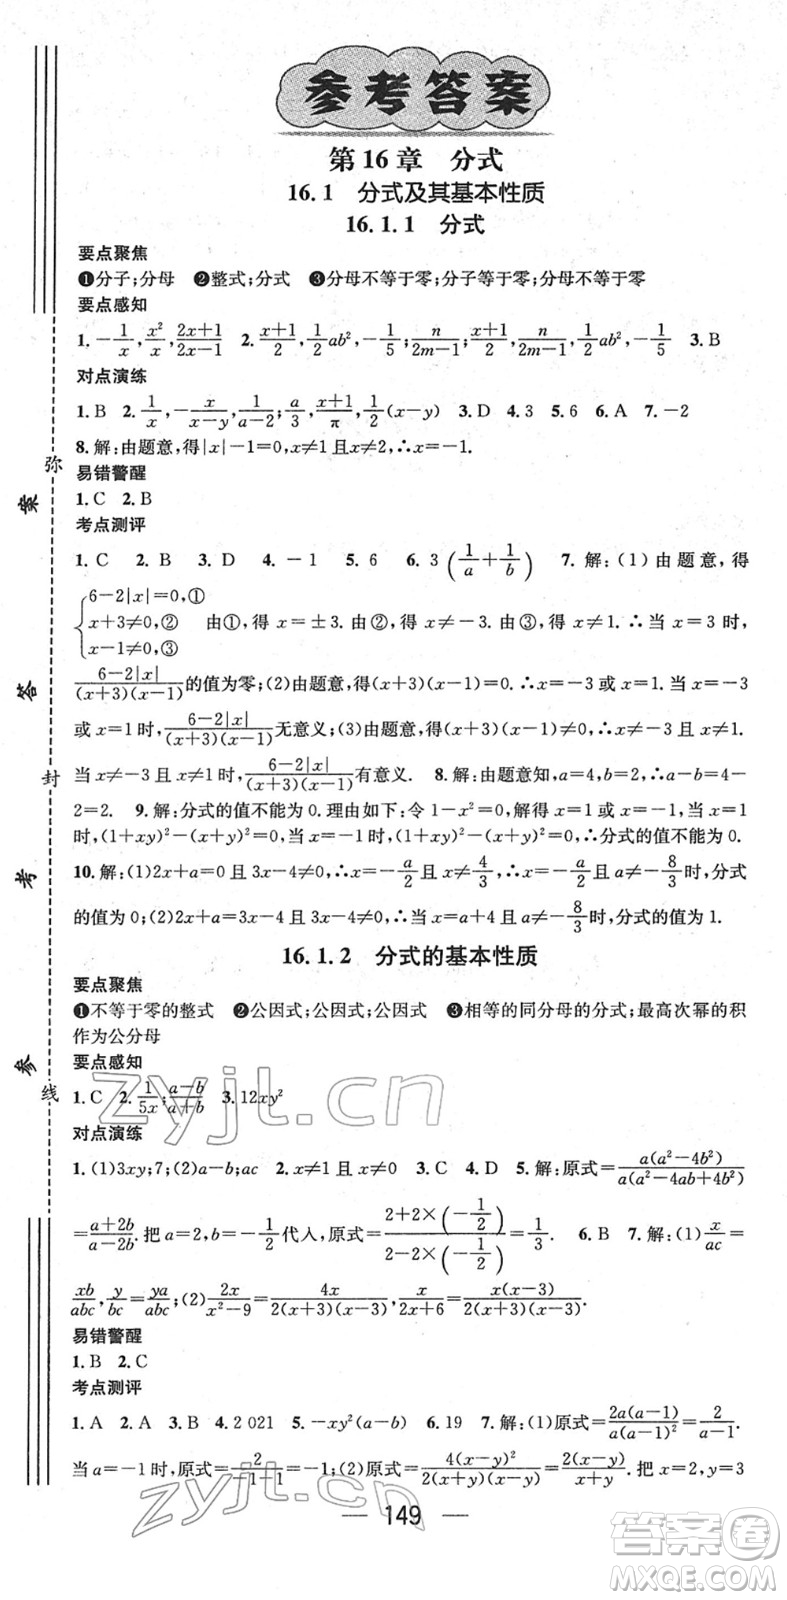 参考答案
第16章 分式
16.1 分式及其基本性质
16.1.1 分式
要点聚焦
❶分子;分母 ❷整式;分式 ❸分母不等于零;分子等于零;分母不等于零
要点感知
1. -1/x, x²/x, (2x+1)/(2x-1) 2. (x+1)/2, 1/2 ab², -1/5; n/(2m-1); (x+1)/2, n/(2m-1), 1/2 ab², -1/5 3. B
对点演练
1. B 2. 1/x, -x/(x-y), 1/(a-2); a/3, (x+1)/π, 1/2(x-y) 3. D 4. 3 5. 6 6. A 7. -2
8. 解:由题意,得|x|-1=0,x≠1且x≠2,∴x=-1.
易错警醒
1. C 2. B
考点测评
1. C 2. B 3. D 4. -1 5. 6 6. 3(1/a+1/b) 7. 解:(1)由题意,得
{6-2|x|=0,① x+3≠0,② x-1≠0,③ 由①,得 x=±3. 由②,得 x≠-3. 由③,得 x≠1. ∴当 x=3 时,
(6-2|x|)/((x+3)(x-1))的值为零;(2)由题意,得(x+3)(x-1)=0. ∴x=-3或x=1. 当 x=-3
或 x=1 时,(6-2|x|)/((x+3)(x-1))无意义;(3)由题意,得(x+3)(x-1)≠0,∴x≠-3且x≠1.
当 x≠-3 且 x≠1 时,(6-2|x|)/((x+3)(x-1))有意义. 8. 解:由题意知,a=4,b=2,∴a-b=4-
2=2. 9. 解:分式的值不能为0.理由如下:令1-x²=0,解得x=±1.当x=±1
时,(1+xy)²-(x+y)²=(1±y)²-(±1+y)²=0,∴分式的值不能为0.
10. 解:(1)2x+a=0且3x-4≠0,∴x=-a/2且x≠4/3,∴x=-a/2且a≠-8/3时,分式
的值为0;(2)2x+a=3x-4≠0,∴当x=a+4且a≠-8/3时,分式的值为1.
16.1.2 分式的基本性质
要点聚焦
❶不等于零的整式 ❷公因式;公因式;公因式 ❸相等的同分母的分式;最高次幂的积
作为公分母
要点感知
1. C 2. 1/5x; (a-b)/(a+b) 3. 12xy²
对点演练
1. (1)3xy;7;(2)a-b;ac 2. x≠1且x≠0 3. C 4. D 5. 解:原式=a(a²-4b²)/a(a²-4ab+4b²)
=(a+2b)/(a-2b). 把a=2,b=-1/2代入,原式=(2+2×(-1/2))/(2-2×(-1/2))=1/3. 6. B 7. 解:(1)x/ac=
xb/abc, y/bc=ya/abc;(2)2x/(x²-9)=4x/(2(x+3)(x-3)), x/(2x+6)=x(x-3)/(2(x+3)(x-3)).
易错警醒
1. B 2. C
考点测评
1. A 2. A 3. B 4. 2 021 5. -xy²(a-b) 6. 19 7. 解:(1)原式=2a(a-1)/(a-1)²=2/(a-1).
当a=-1时,原式=2/(-1-1)=-1. (2)原式=4(x-y)²/(2(x+y)(x-y))=2(x-y)/(x+y). 把x=2,y=3
149
弥
封
线
参 考 答 案
zyjl.cn
zyjl.cn
答案圈
MXQE.COM